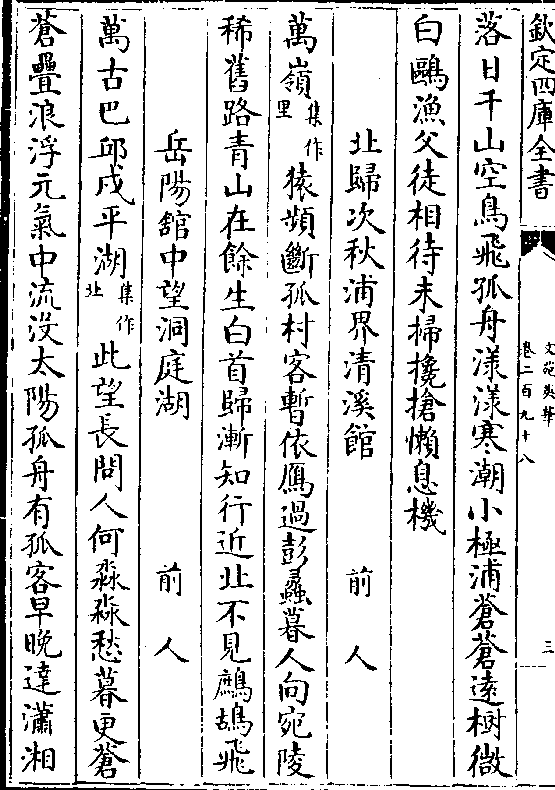 欽定四庫全書
文苑英華
卷二百九十八
三
落日千山空鳥飛孤舟漾漾寒潮小極浦蒼蒼遠樹微
白鷗漁父徒相待未掃攙搶懶息機
北歸次秋浦界清溪館 前人
萬嶺集作里猿頻斷孤村客暫依鴈過彭蠡暮人向宛陵
稀舊路青山在餘生白首歸漸知行近北不見鷓鴣飛
岳陽舘中望洞庭湖 前人
萬古巴邱戍平湖集作北此望長問人何淼淼愁暮更蒼
蒼疊浪浮元氣中流沒太陽孤舟有孤客早晚達瀟湘